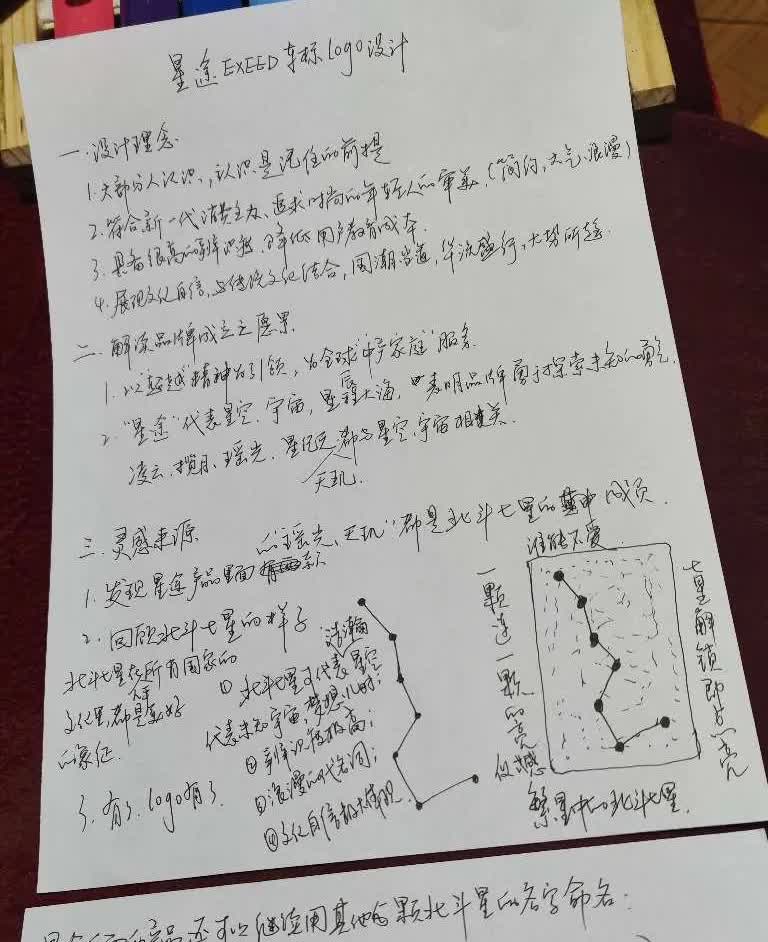 星途EXEED车标logo设计
一.设计理念
1.大部分人认识,认识是记住的前提
2.符合新一代消费主力、追求时尚的年轻人的审美,(简约,大气、浪漫)
3.具备很高的辨识,降低用户教育成本.
4.展现文化自信,与传统文化结合,国潮当道,华流盛行,大势所趋.
二.解读品牌成立之愿景.
1.以"超越"精神为引领,为全球"中产家庭"服务.
2."星途"代表星空、宇宙,星辰大海,表明品牌勇于探索未知的勇气.
凌云、揽月、瑶光、星纪元都与星空、宇宙相关.
天玑.
三.灵感来源
1.发现星途产品里面的"瑶光、天玑"都是北斗七星的成员.
2.回顾北斗七星的样子
北斗七星在所有国家的
文化里,都是美好
的象征.
3.有了.logo有了.
①北斗七星可代表浩瀚星空
代表未知宇宙,梦想,儿时;
②辨识度极高;
③浪漫的代名词;
④文化自信极大体现.
谁能不爱
一颗连一颗的亮
仪式感
七星解锁即点亮
繁星中的北斗七星.
还可以继续用其他颗北斗星的名字命名: